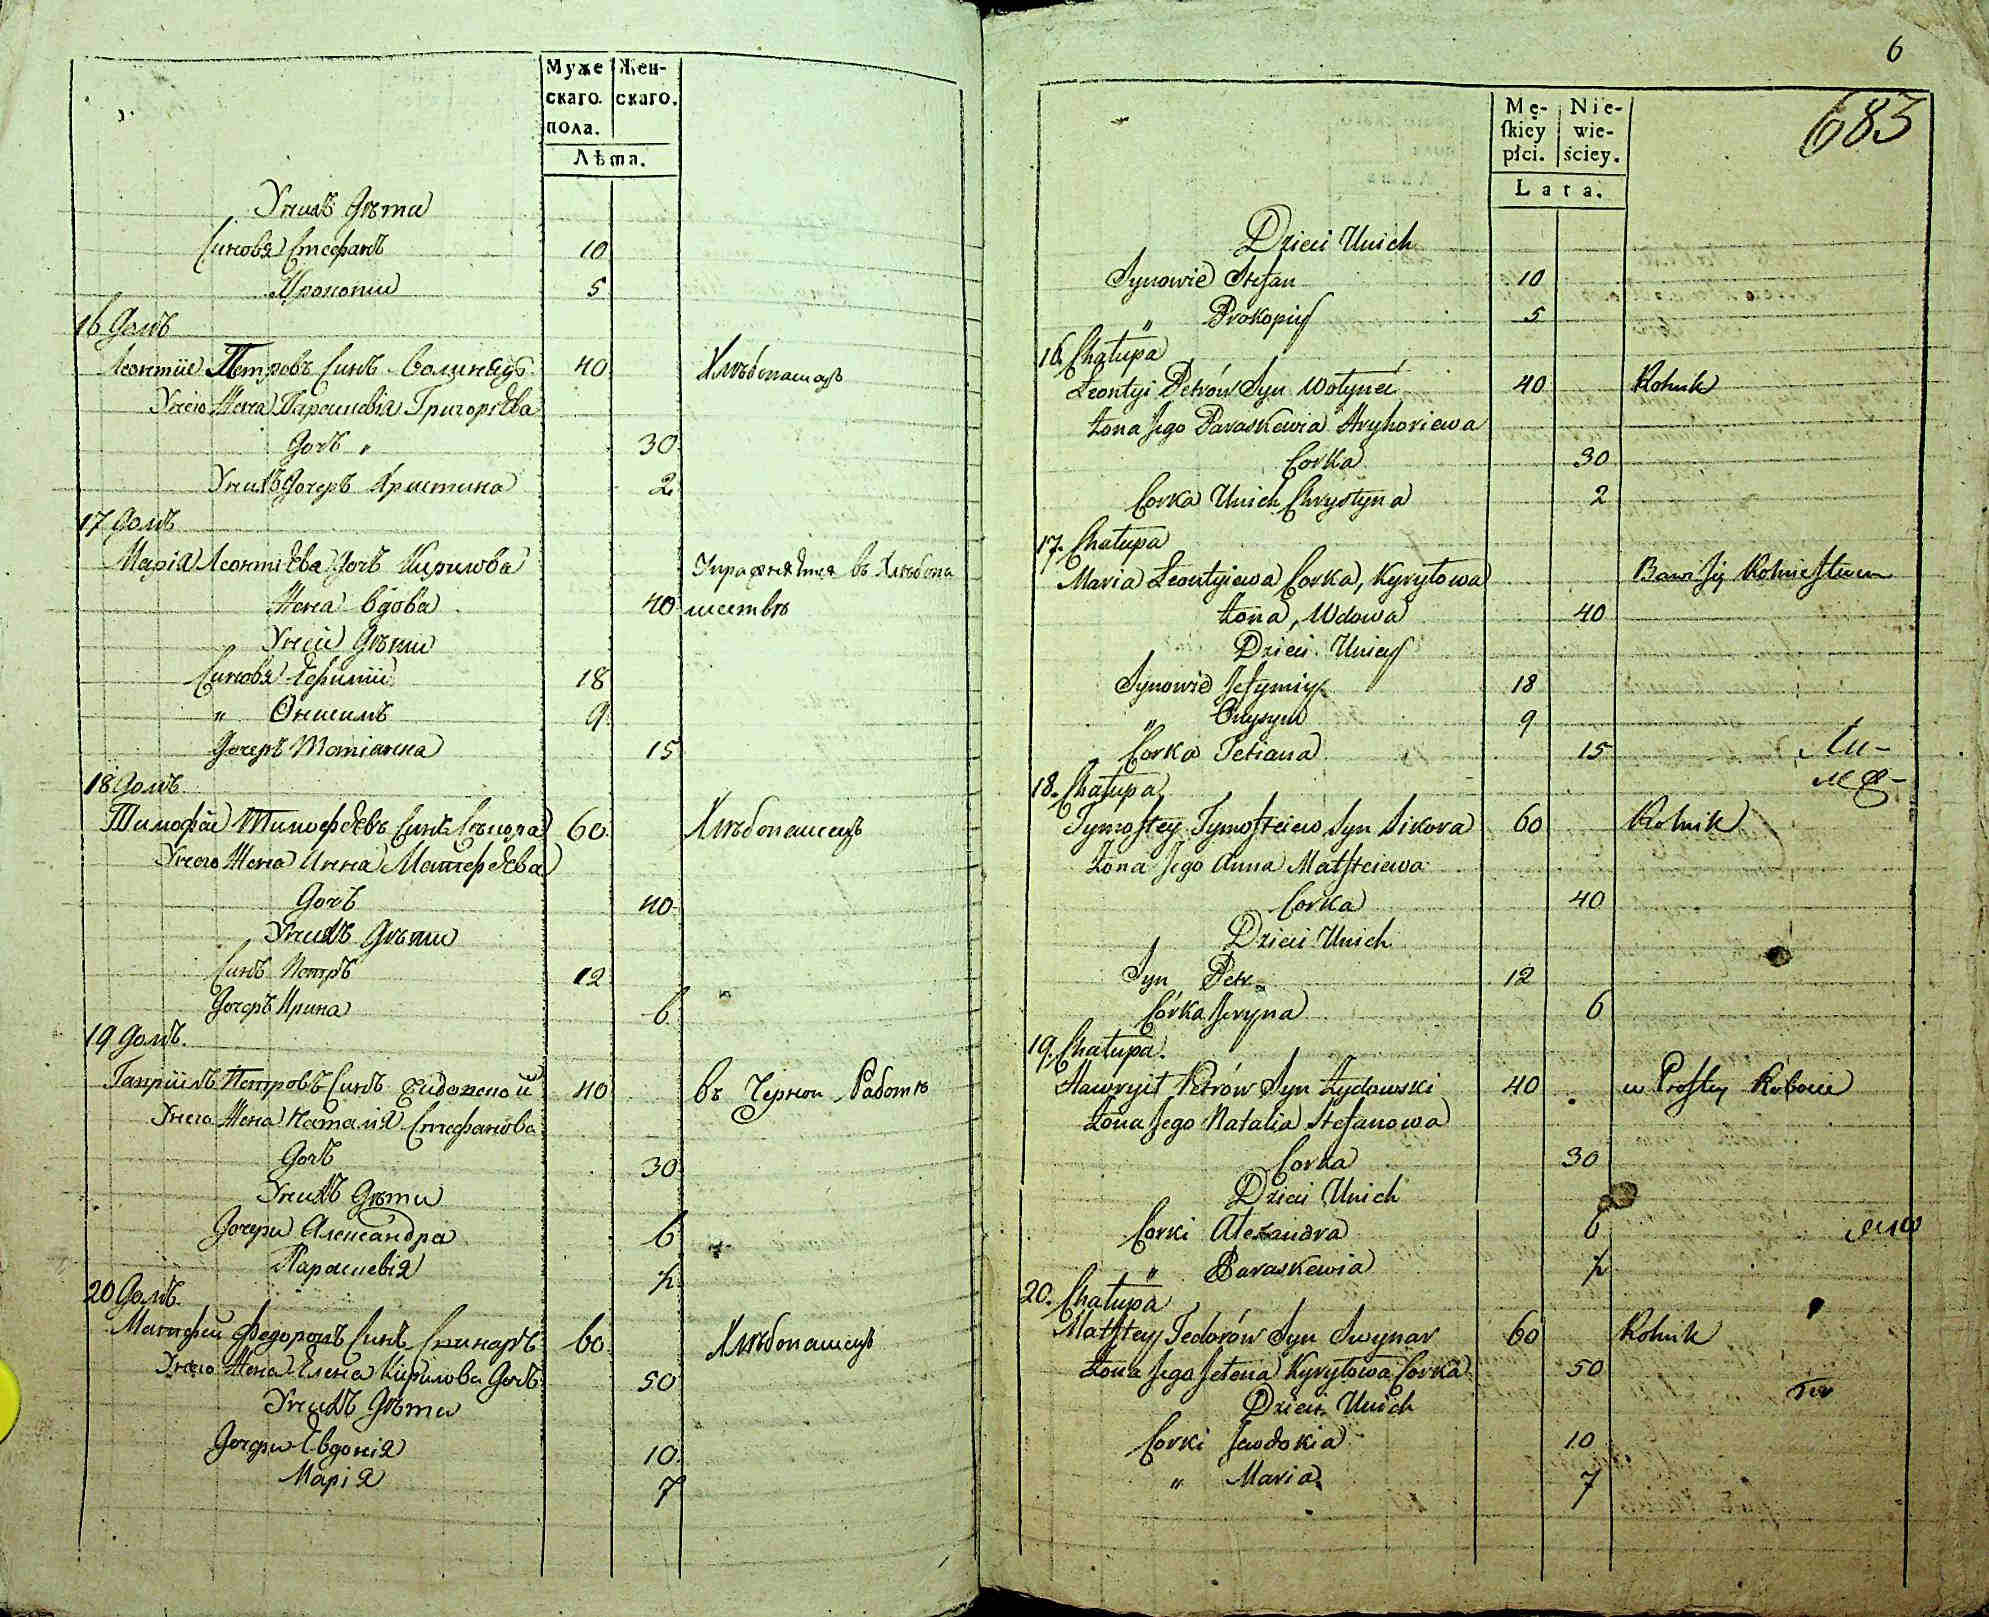 Муже Жен-
скаго. скаго.
пола.
Лѣта.
Унихъ Дѣти
Синовя Стефанъ 10
Прокопи 5
16 Домъ
Леонтие Петровъ Синъ Волинецъ 40 Хлѣбопашецъ
Унего Жена Параскевія Григоріева
Дочъ „ 30
Унихъ Дочеръ Христина 2
17 Домъ
Марія Леонтіева Дочъ Кирилова Упражняется въ Хлѣбопа
Жена Вдова 40 шествѣ
Унеи Дѣти
Синовя Юфимии 18
„ Онисимъ 9
Дочеръ Тотіанна 15
18 Домъ
Тимофей Тимофѣевъ Синъ Секора 60 Хлѣбопашецъ
Унего Жена Анна Матфѣева
Дочъ 40
Унихъ Дѣти
Синъ Петръ 12
Дочеръ Ирина 6
19 Домъ.
Гаприилъ Петровъ Синъ Жидовской 40 въ Чернои Работѣ
Унего Жена Наталія Стефанова
Дочъ 30
Унихъ Дѣти
Дочери Александра 6
Параскевія ½
20 Домъ.
Матфеи Федоровъ Синъ Свинаръ 60 Хлѣбопашецъ
Унего Жена Елена Кирилова Дочъ 50
Унихъ Дѣти
Дочери Евдокія 10
Марія 7
6
683
Mę- Nie-
skiey wie-
płci. ściey.
Lata.
Dzieci Unich
Synowie Stefan 10
„ Prokopiy 5
16. Chałupa
Leontyi Petrów Syn Wołyneć 40 Rolnik
Żona Jego Paraskewia Hryhoriewa
Corka 30
Corka Unich Chrystyna 2
17. Chałupa
Maria Leontyiewa Corka, Kyryłowa Bawi się Rolnictwem
Żona, Wdowa 40
Dzieci Unicy
Synowie Jefymiy 18
„ Onysym 9
Corka Tetiana 15
Ли-
18. Chałupa
Tymoftey Tymofteiew Syn Sikora 60 Rolnik
Żona Jego Anna Matfteiewa
Corka 40
Dzieci Unich
Syn Petr 12
Córka Jeryna 6
19. Chałupa.
Hawryił Petrów Syn Żydowski 40 w Prostey Robocie
Żona Jego Natalia Stefanowa
Corka 30
Dzieci Unich
Corki Alexandra 6
„ Paraskewia ½
20. Chałupa
Matftey Fedorów Syn Swynar 60 Rolnik
Żona Jego Jelena Kyryłowa Corka 50
Dzieci Unich
Corki Jewdokia 10
„ Maria 7